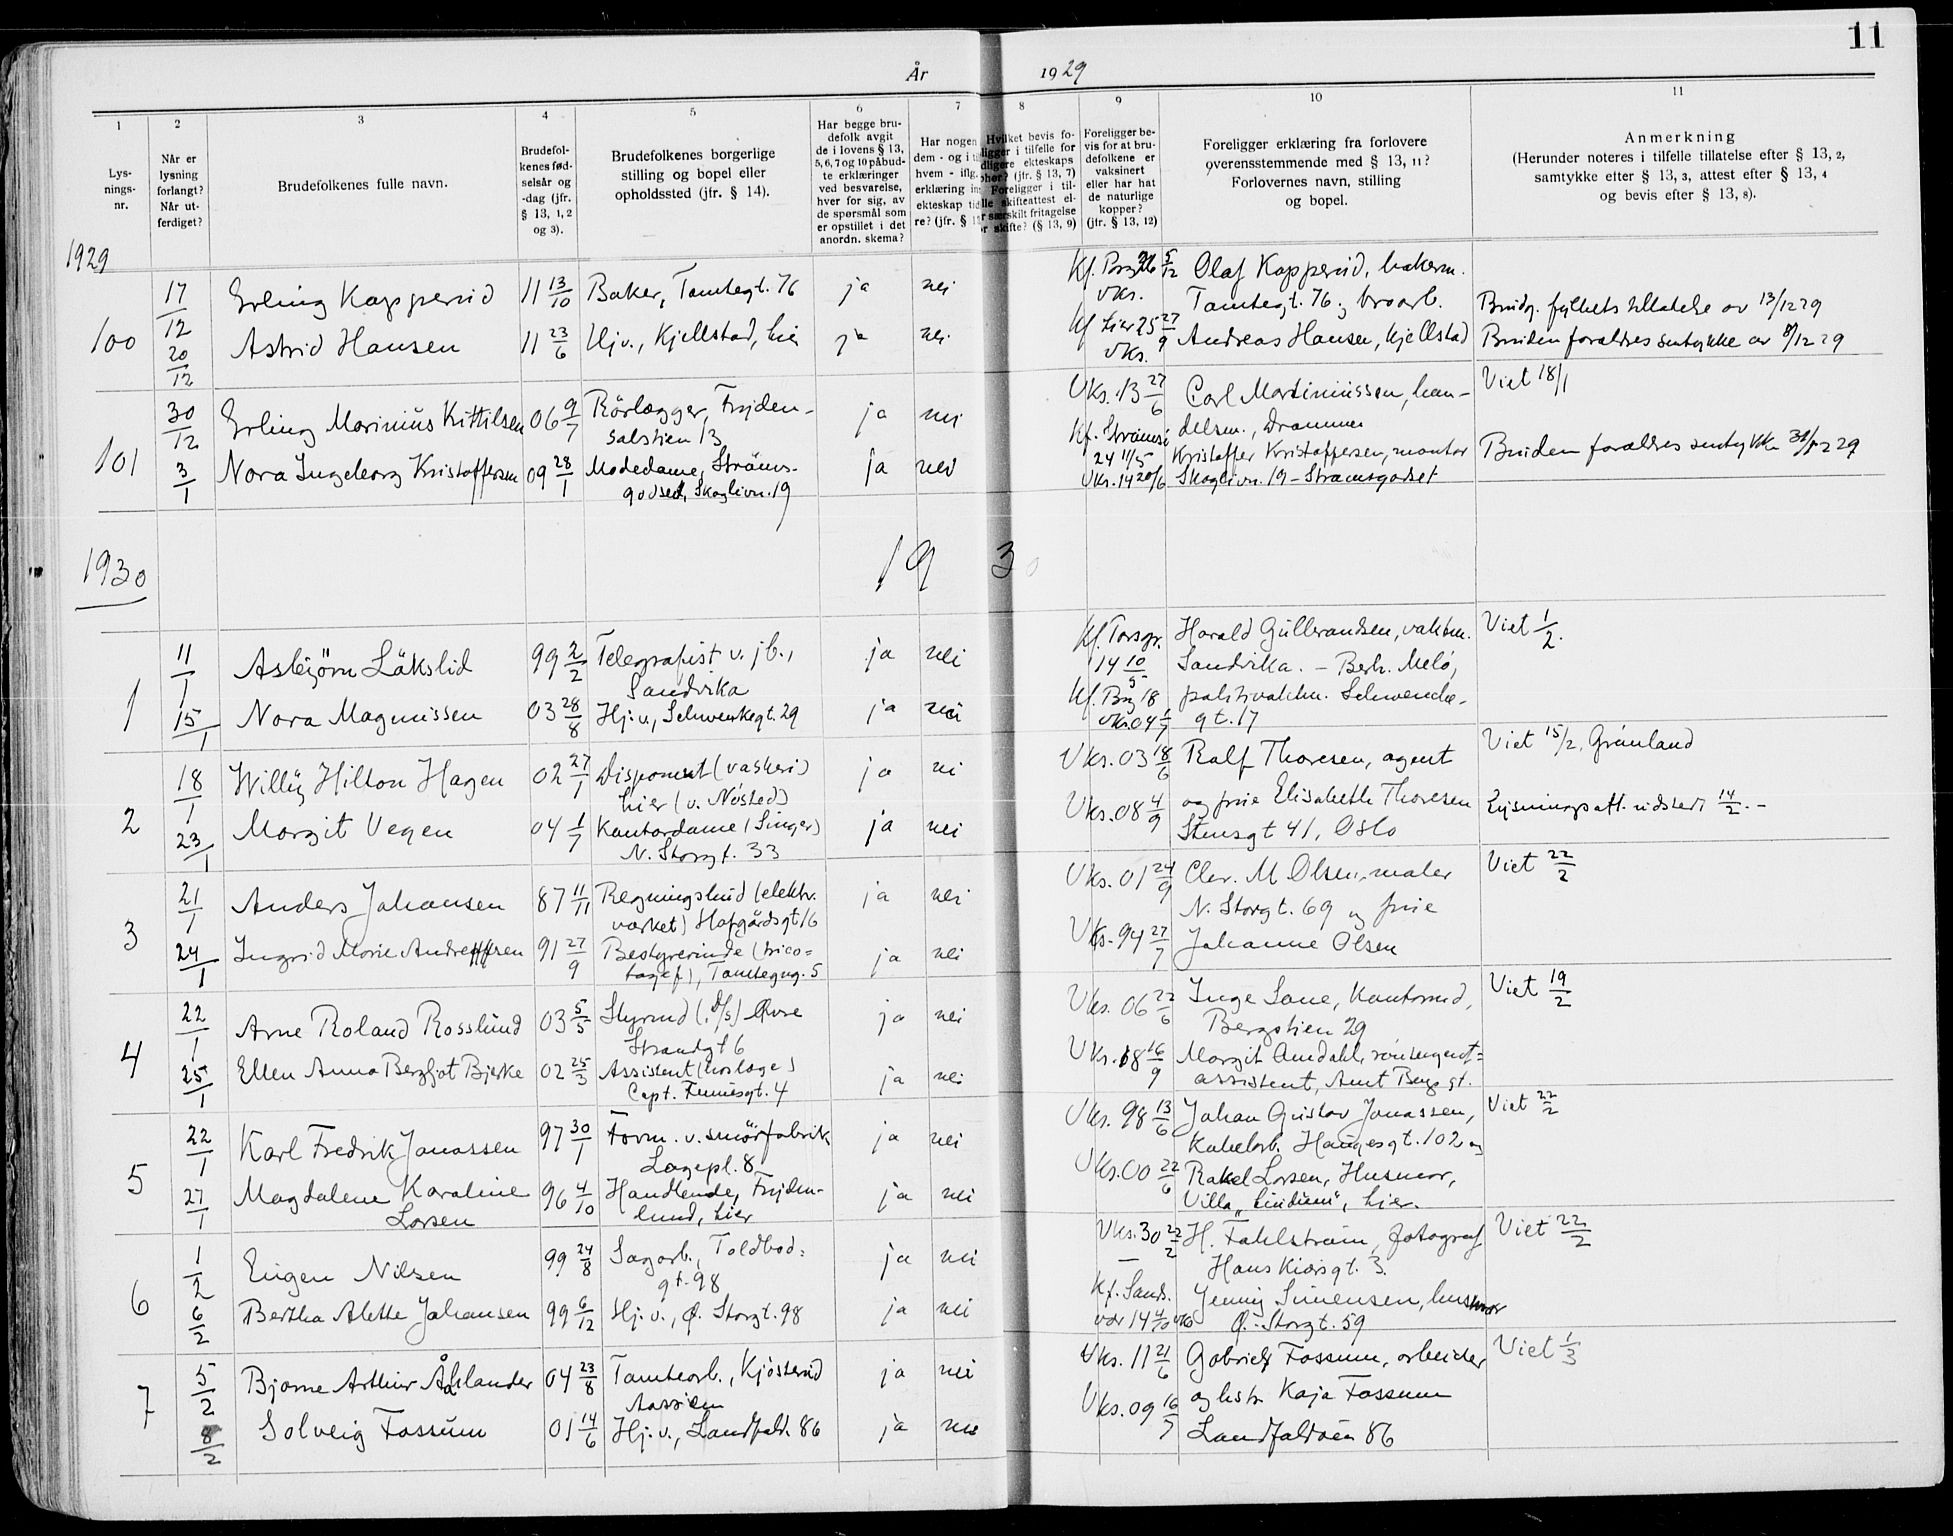 11
År 1929
1 2 3 4 5 6 7 8 9 10 11
Lysningsnr.
Når er lysning forlangt? Når utferdiget?
Brudefolkenes fulle navn.
Brudefolkenes fødselsår og -dag (jfr. § 13, 1, 2 og 3).
Brudefolkenes borgerlige stilling og bopel eller opholdssted (jfr. § 14).
Har begge brudefolk avgit de i lovens § 13, 5, 6, 7 og 10 påbudte erklæringer ved besvarelse, hver for sig, av de spørsmål som er opstillet i det anordn. skema?
Har nogen dem - og i hvem - iflg. erklæring ekteskap re? (jfr. §
Hvilket bevis i tilfelle for ekteskaps (jfr. § 13, 7) Foreligger i skifteattest særskilt fritagelse skifte? (§ 13, 9)
Foreligger bevis for at brudefolkene er vaksinert eller har hat de naturlige kopper? (jfr. § 13, 12)
Foreligger erklæring fra forlovere overensstemmende med § 13, 11? Forlovernes navn, stilling og bopel.
Anmerkning (Herunder noteres i tilfelle tillatelse efter § 13, 2, samtykke efter § 13, 3, attest efter § 13, 4 og bevis efter § 13, 8).
1929
100
17/12 Erling Kopperud 11 13/10 Baker, Tomtegt. 76 ja nei 5/12 Olaf Kopperud, bakerm.
vks. Tomtegt. 76; Brudg. fylkets tillatelse av 13/12 29
20/12 Astrid Hansen 11 23/6 Hj.v., Kjellstad, Lier ja nei Kf Lier 25 27/9 vks. Andreas Hansen, Kjellstad Bruden foreldres samtykke av 9/12 29
101
30/12 Erling Marinius Kittilsen 06 9/7 Rörlægger, Frydensalstien 13 ja nei Vks. 13 27/6 Carl Martiniussen, handelsm., Drammen Viet 18/1
3/1 Nora Ingeborg Kristoffersen 09 28/1 Modedame, Strömsgodset, Skoglivn. 19 ja nei 24 11/5 Vks. 14 20/6 Kristoffer Kristoffersen, montør
Skoglivn. 19 - Strømsgodset Bruden foreldres samtykke
1930 1930
1
11/1 Asbjörn Läkslid 99 2/2 Telegrafist v. jb., Sandvika ja nei Kf. Torsgr. 14 10/5 Harald Gulbrandsen, vaktm. Viet 1/2.
Sandvika. -
15/1 Nora Magnussen 03 28/8 Hj.v., Schwenkegt. 29 ja nei Kf. Brg 18 Schwenckegt. 17
2
18/1 Willy Hilton Hagen 02 27/1 Disponent (vaskeri) Lier (v. Nøsted) ja nei Vks. 03 18/6 Rolf Thoresen, agent Viet 15/2, Grønland
23/1 Margit Vegen 04 1/7 Kontordame (Singer) N. Storgt. 33 ja nei Vks. 08 4/9 og frue Elisabeth Thoresen
Stensgt 41, Oslo Lysningsatt. utsted. 14/2. -
3
21/1 Anders Johansen 87 11/11 Regningsbud (elektr. verket) Hofgårdsgt 16 ja nei Vks. 01 24/9 Chr. M Olsen, maler Viet 22/2
N. Storgt. 69 og frue
24/1 Ingrid Marie Andreassen 91 27/9 Bestyrerinde (tricotagef.), Tomtegt. 5 ja nei Vks. 94 27/7 Johanne Olsen
4
22/1 Arne Roland Rosslund 03 5/5 Styrmd Strandgt 6 ja nei Vks. 06 22/6 Inge Lone, Kontormd, Viet 19/2
Bergstien 29
25/1 Ellen Anna Bergljot Bjerke 02 25/3 Assistent ja nei Vks. 08 16/9 Margit Amdahl, röntgenassistent,
5
22/1 Karl Fredrik Jonassen 97 30/1 Form. v. smörfabrik Logepl. 8 ja nei Vks. 98 13/6 Johan Gustav Jonassen, Viet 22/2
Kabelarb. Haugesgt. 102 og
27/1 Magdalene Karoline Larsen 96 4/10 Handlende, Frydenlund, Lier ja nei Vks. 00 22/6 Rakel Larsen, Husmor,
Villa „Lindum", Lier.
6
1/2 Eugen Nilsen 99 24/8 Sagarb., Toldbodgt. 98 ja nei Vks. 30 22/2 H. Fahlstrøm, fotograf Viet 22/2
Hans Kiærsgt. 3.
6/2 Bertha Alette Johansen 99 6/12 Hj.v., Ø. Storgt. 98 ja nei Jenny Simensen, husmor
Ø. Storgt. 59
7
5/2 Bjarne Arthur Åhlander 04 23/8 Tomtearb., Kjösterud Aassiden ja nei Vks. 11 21/6 Gabriel Fossum, arbeider Viet 1/3
8/2 Solveig Fossum 01 14/6 Hj.v., Landfald. 86 ja nei Vks. 09 16/9 og hustr. Kaja Fossum
Landfaldöen 86